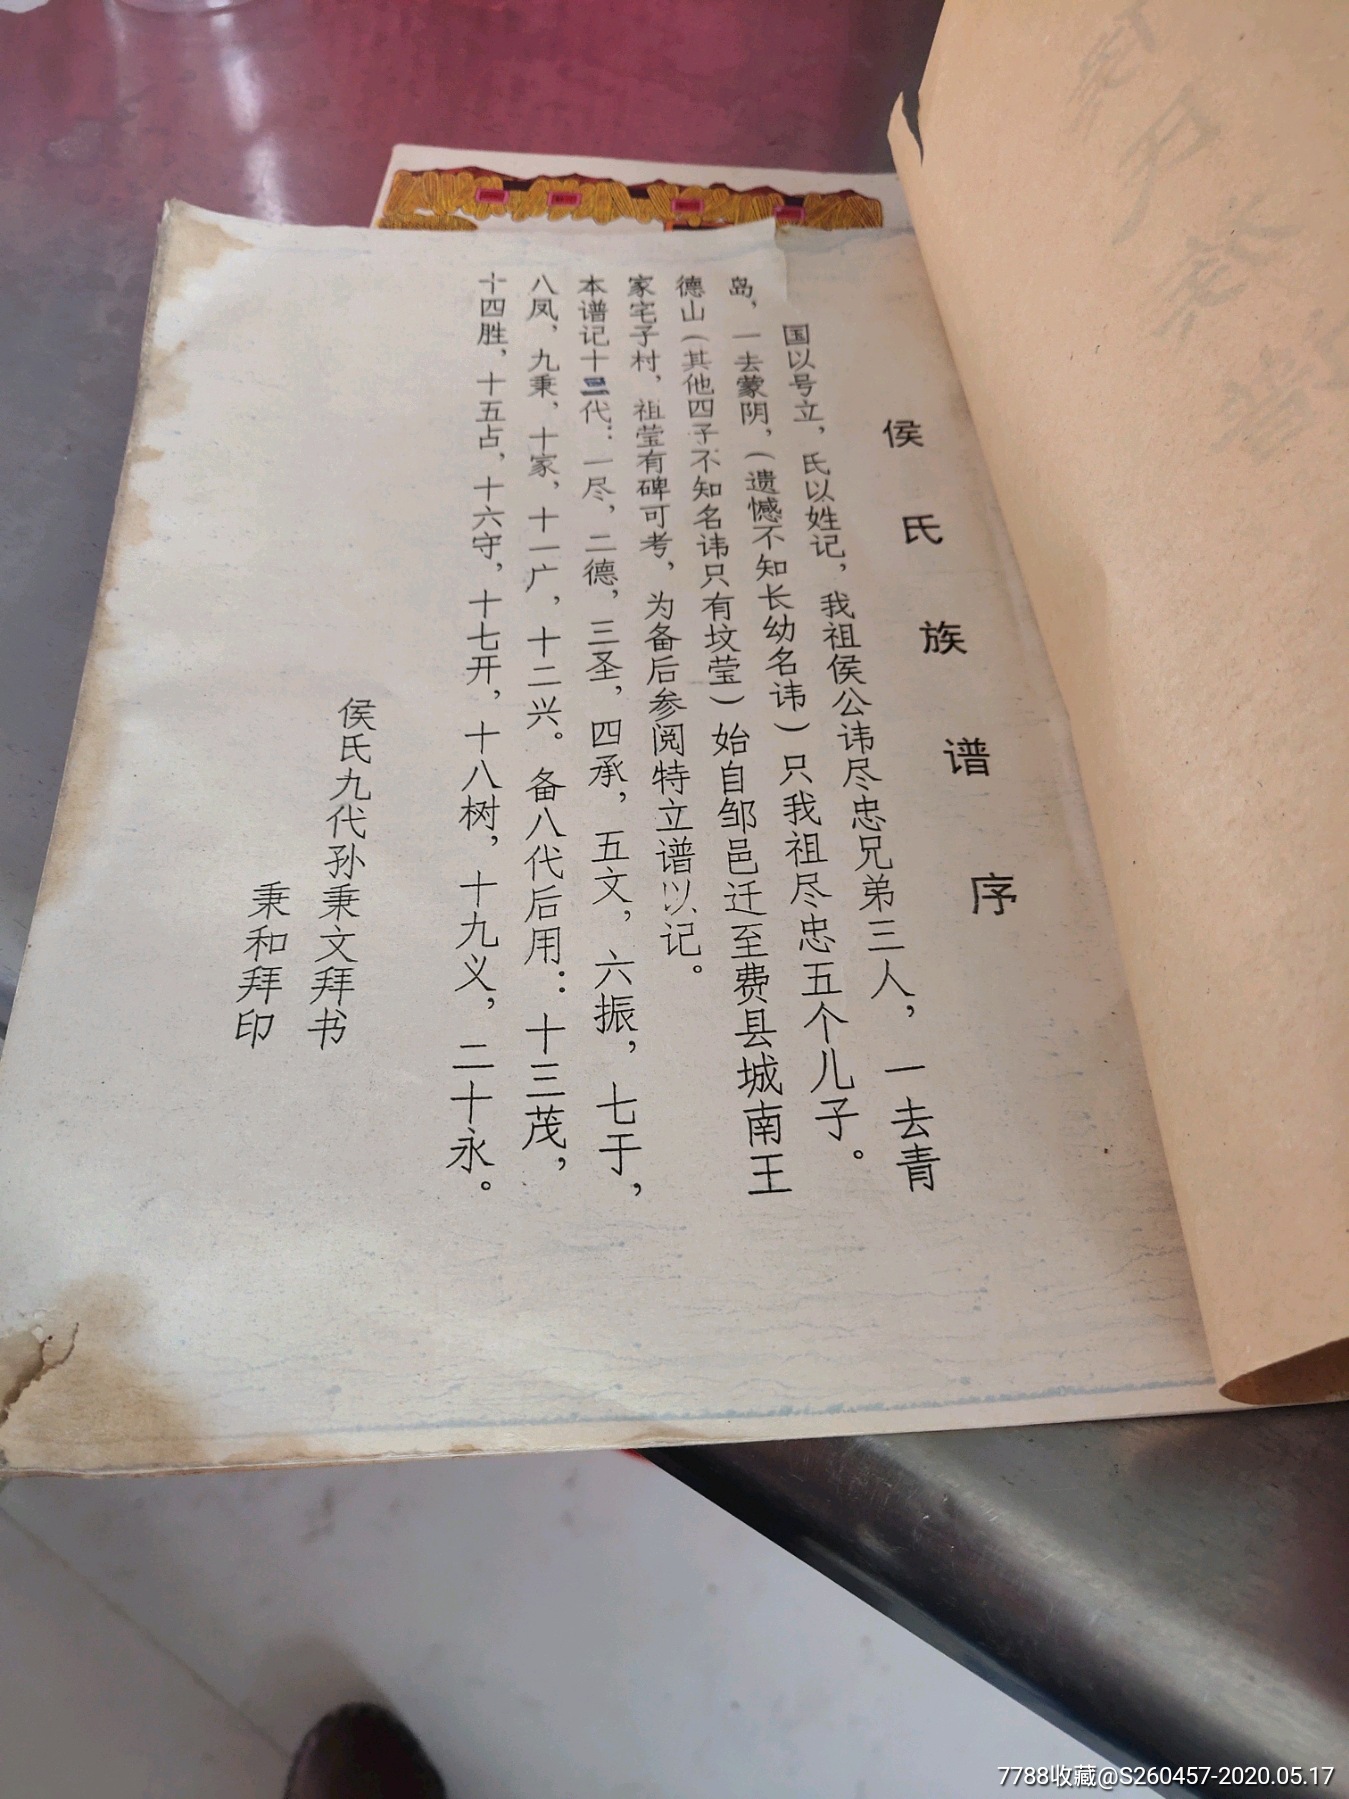 侯氏族谱序
国以号立，氏以姓记，我祖侯公讳尽忠兄弟三人，一去青
岛，一去蒙阴，（遗憾不知长幼名讳）只我祖尽忠五个儿子。
德山（其他四子不知名讳只有坟莹）始自邹邑迁至费县城南王
家宅子村，祖莹有碑可考，为备后参阅特立谱以记。
本谱记十二代：一尽，二德，三圣，四承，五文，六振，七于，
八凤，九秉，十家，十一广，十二兴。备八代后用：十三茂，
十四胜，十五占，十六守，十七开，十八树，十九义，二十永。
侯氏九代孙秉文拜书
秉和拜印
7788收藏@S260457-2020.05.17